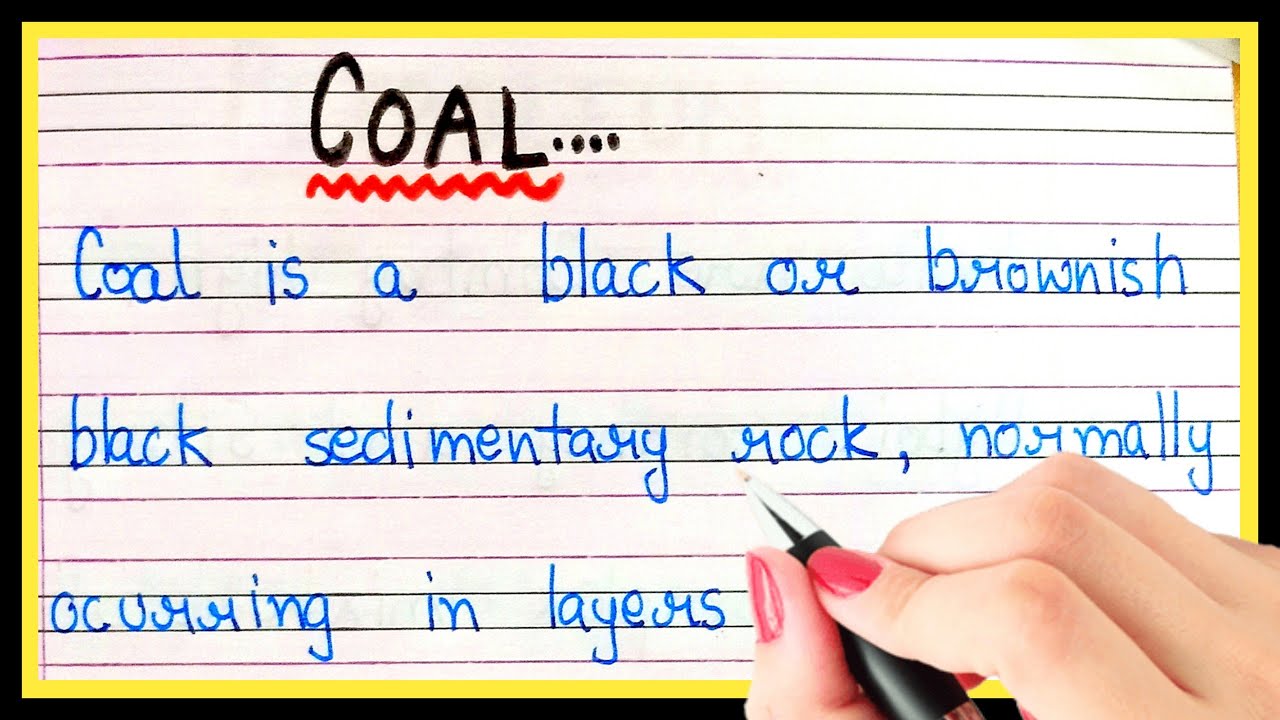 COAL....
Coal is a black or brownish
black sedimentary rock, normally
ocurring in layers